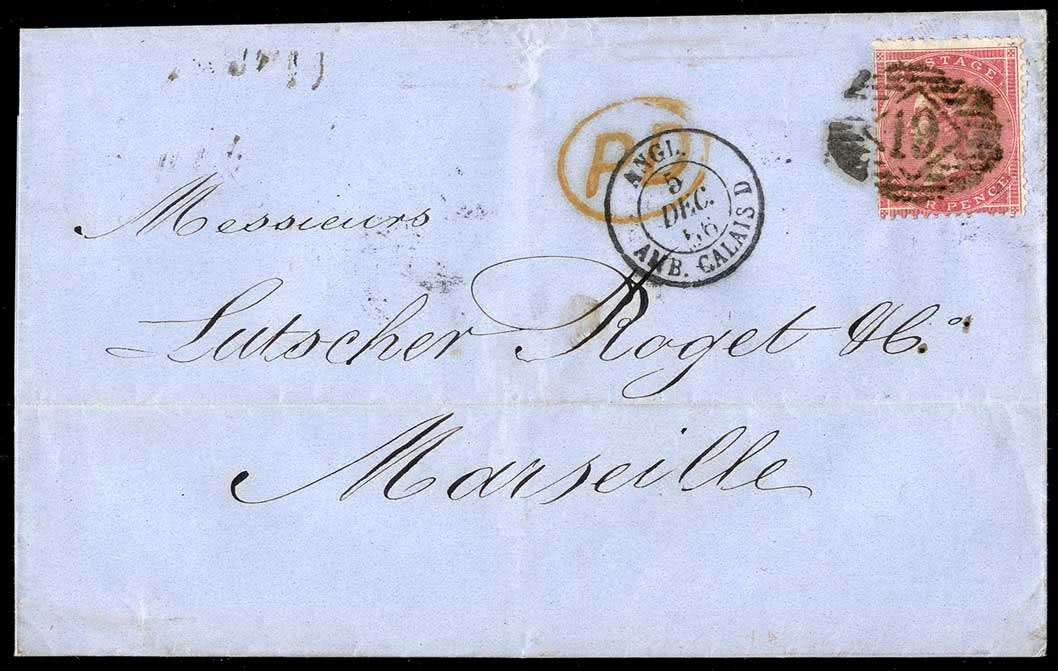 POSTAGE
10
PENCE
PD
ANGL.
5
DEC.
56
AMB. CALAIS D
Messieurs
Lutscher Roget & Co.
Marseille